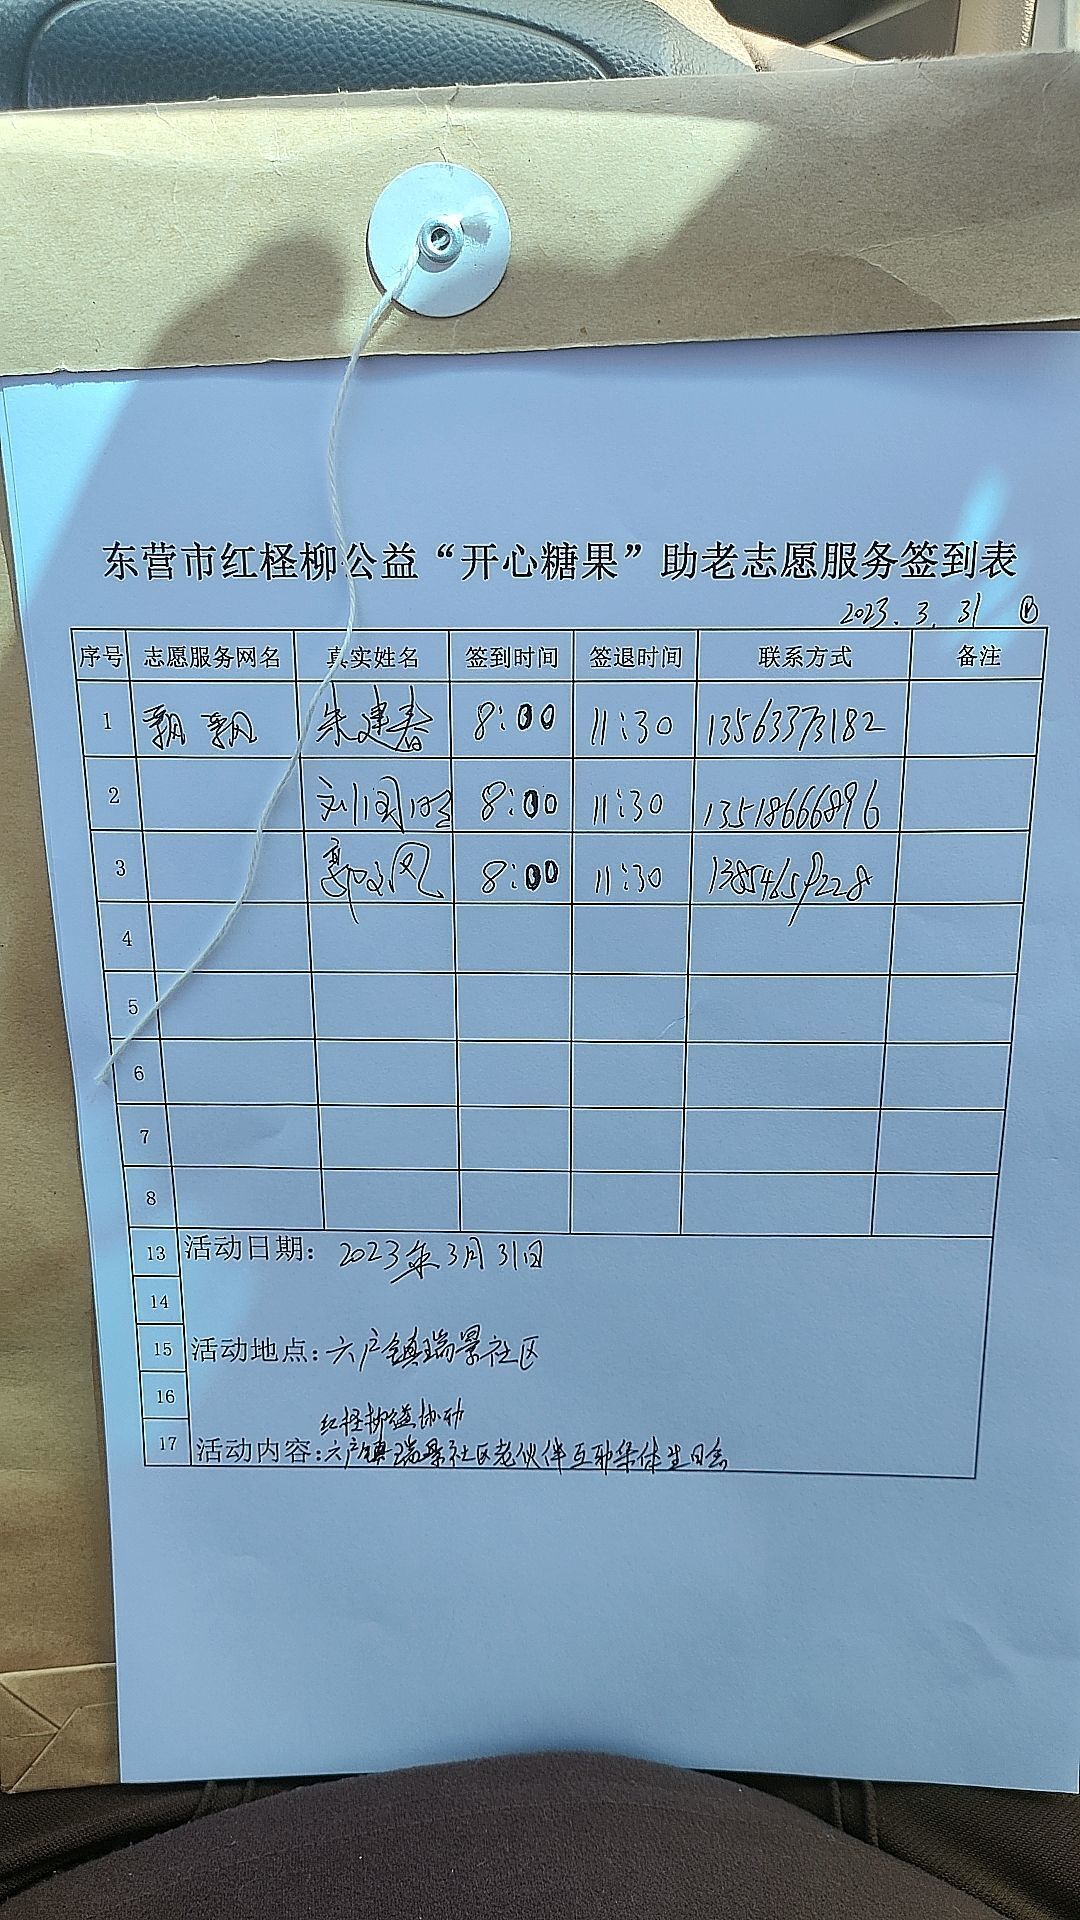 东营市红柽柳公益“开心糖果”助老志愿服务签到表
2023.3.31
序号 志愿服务网名 真实姓名 签到时间 签退时间 联系方式 备注
1 飘飘 朱建春 8:00 11:30 13563373182
2 8:00 11:30 13518666896
3 8:00 11:30 13854659228
4
5
6
7
8
13 活动日期：2023年3月31日
14
15 活动地点：六户镇瑞景社区
16
红柽柳益协动
17 活动内容：六户镇瑞景社区老伙伴互助集体生日会